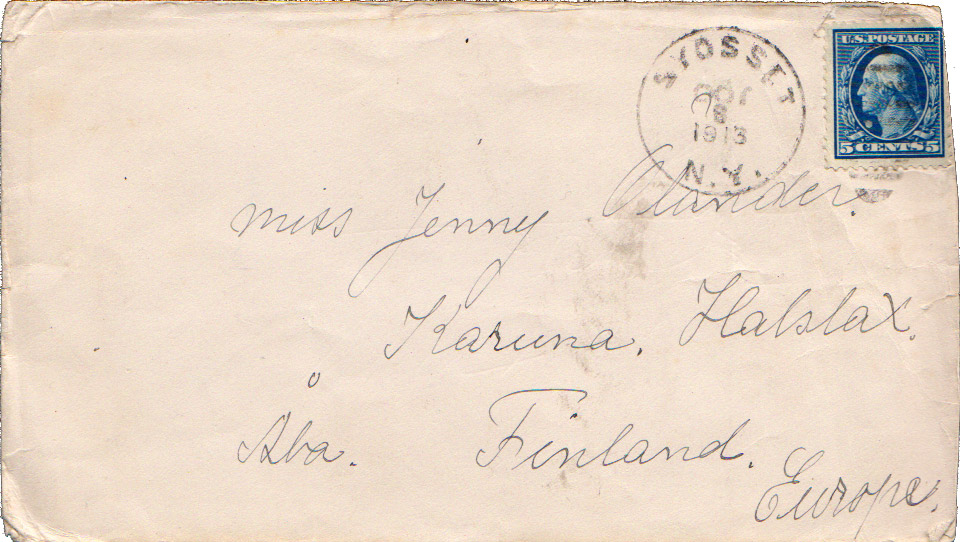 U.S. POSTAGE
5 CENTS 5
SYOSSET
OCT
8
1913
N.Y.
miss Jenny Olander.
Karuna. Halslax.
Åba. Finland.
Europe.